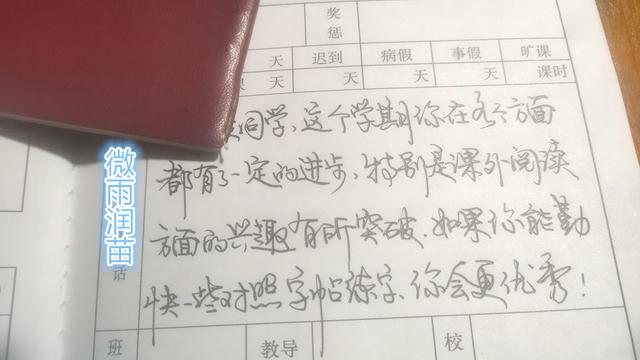 奖
惩
天 迟到 病假 事假 旷课
天 天 天 天 课时
同学,这个学期你在各个方面
都有了一定的进步,特别是课外阅读
方面的兴趣有所突破.如果你能勤
快一些对照字帖练字,你会更优秀!
话
微雨润苗
班 教导 校